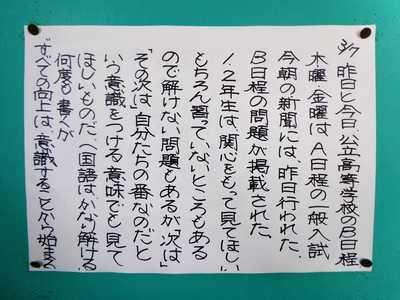 3/7 昨日と今日、公立高等学校のB日程
木曜・金曜は、A日程の一般入試
今朝の新聞には、昨日行われた、
B日程の問題が掲載された。
1、2年生は、関心をもって見てほしい
もちろん習っていないところもある
ので解けない問題もあるが、「次は」
「その次は」自分たちの番なのだと
いう意識をつける意味でも見て
ほしいものだ(国語はかなり解ける)
何度も書くが
「すべての向上は、意識することから始まる